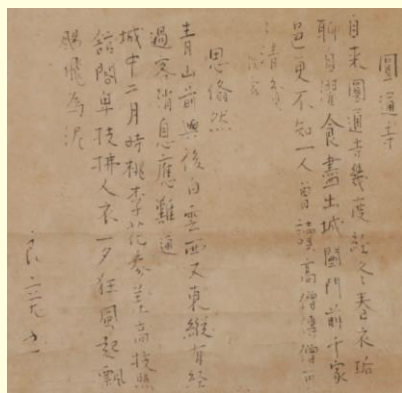 圓通寺
自来圓通寺幾度経冬春衣垢
聊自濯食盡出城闉門前千家
邑更不知一人曽読高僧傳僧可
清貧
思翛然
青山前與後白雲西又東縦有経
過客消息應難通
城中二月時桃李花参差高枝照
舘閣卑枝拂人衣一夕狂風起飄
颺飛為泥